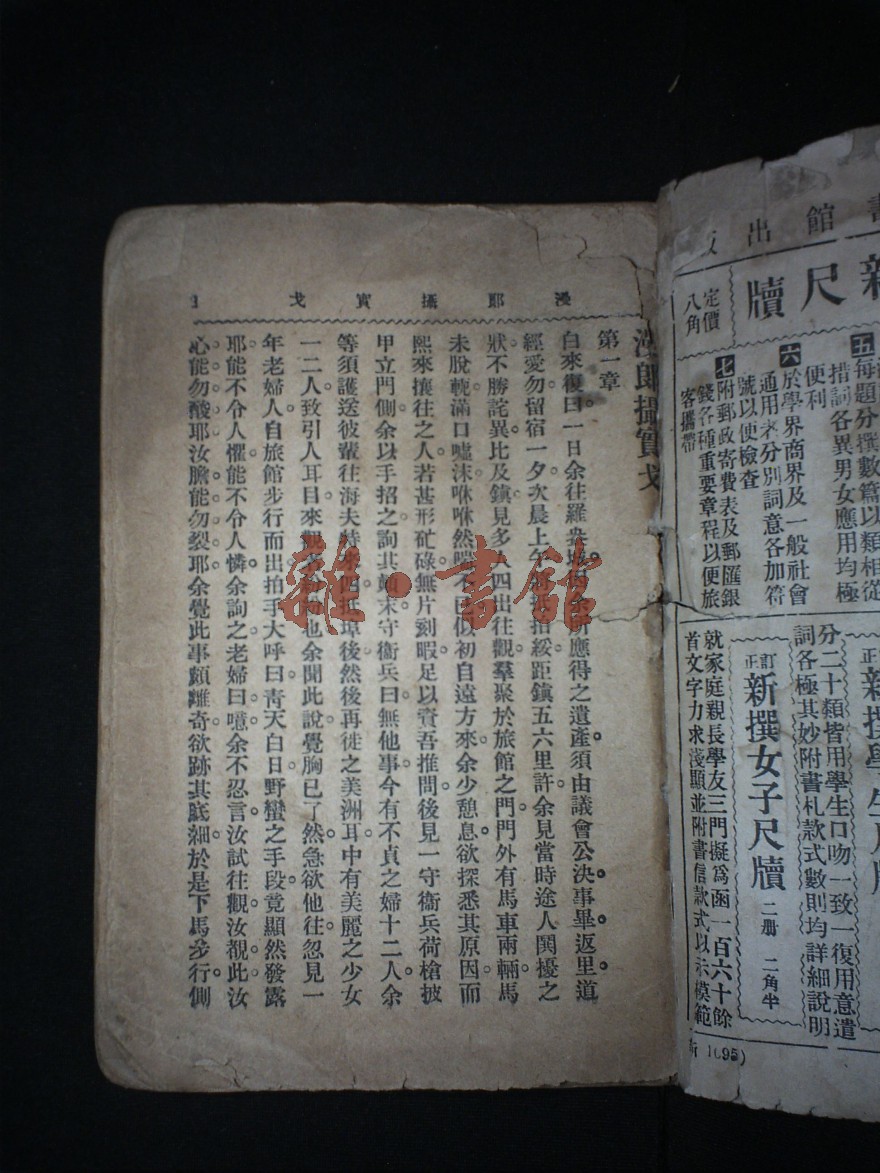 書館出版
新尺牘
定價
八角
五每題分撰數篇以類相從
措詞各異男女應用均極
便利
六於學界商界及一般社會
通用者分別詞意各加符
號以便檢查
七附郵政寄費表及郵匯銀
錢各種重要章程以便旅
客攜帶
新撰學生尺牘
分二十類皆用學生口吻一致一復用意遣
詞各極其妙附書札款式數則均詳細說明
訂正
新撰女子尺牘
二册 二角半
就家庭親長學友三門擬爲函一百六十餘
首文字力求淺顯並附書信款式以示模範
1095)
漫郎攝實戈
漫郎攝實戈
第一章
白來復曰一日余往羅 應得之遺產須由議會公決事畢返里道
經愛勿留宿一夕次晨上午 拍綏距鎮五六里許余見當時途人閧擾之
狀不勝詫異比及鎮見多人四出往觀羣聚於旅館之門門外有馬車兩輛馬
未脫輗滿口噓沫咻咻然 不已似初自遠方來余少憩息欲探悉其原因而
熙來攘往之人若甚形碌無片刻暇足以資吾推問後見一守衞兵荷槍披
甲立門側余以手招之詢其顛末守衞兵曰無他事今有不貞之婦十二人余
等須護送彼輩往海夫特 抵埠後然後再徙之美洲耳中有美麗之少女
一二人致引人耳目來觀者 也余聞此說覺胸已了然急欲他往忽見一
年老婦人自旅館步行而出拍手大呼曰靑天白日野蠻之手段竟顯然發露
耶能不令人懼能不令人憐余詢之老婦曰噫余不忍言汝試往觀汝覩此汝
心能勿酸耶汝膽能勿裂耶余覺此事頗離奇欲跡其底細於是下馬步行側
雜·書館